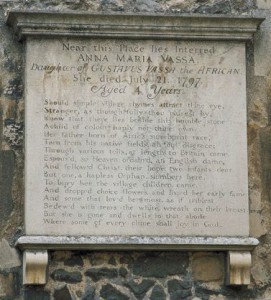 Near this Place lies Interred
ANNA MARIA VASSA
Daughter of GUSTAVUS VASSA the AFRICAN
She died July 21 1797
Aged 4 Years
Should simple village rhymes attract thine eye,
Stranger, as thoughtfully thou passest by,
Know that there lies beside this humble stone
A child of colour haply not thine own.
Her father born of Afric's race,
Torn from his native fields, ah foul disgrace:
Through various toils, at length to Britain came
Espous'd, so Heaven ordain'd, an English dame,
And follow'd Christ; their hope two infants dear.
But one, a hapless Orphan, slumbers here.
To bury her the village children came,
And dropp'd choice flowers, and lisp'd her early fame;
And some that lov'd her most, as if unblest,
Bedew'd with tears the white wreath on their breast;
But she is gone and dwells in that abode
Where some of every clime shall joy in God.